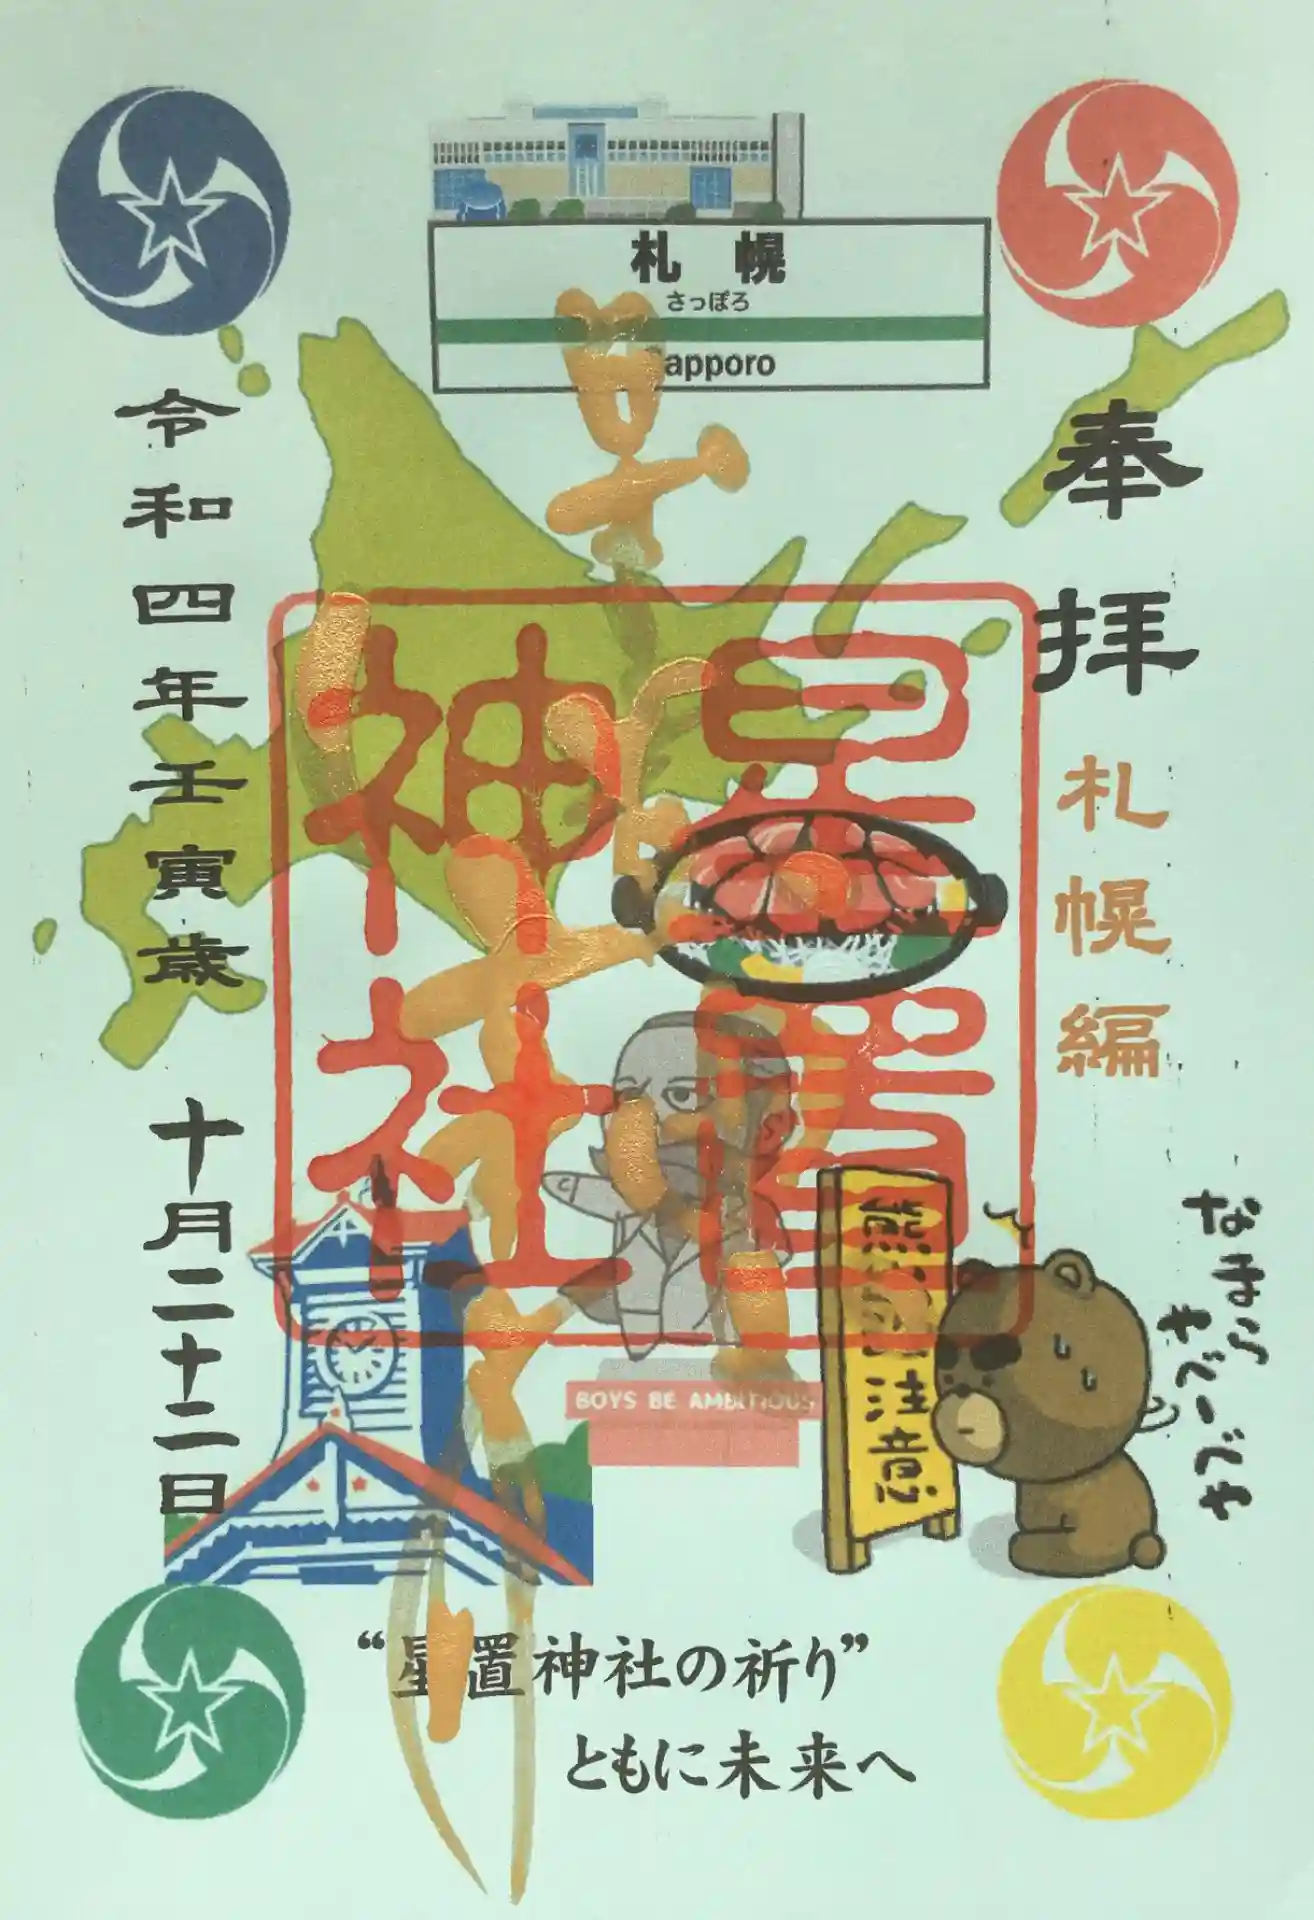 札幌
さっぽろ
Sapporo
奉拝
札幌編
星置
神社
令和四年壬寅歳
十月二十二日
BOYS BE AMBITIOUS
なまら
やべーべや
“星置神社の祈り”
ともに未来へ